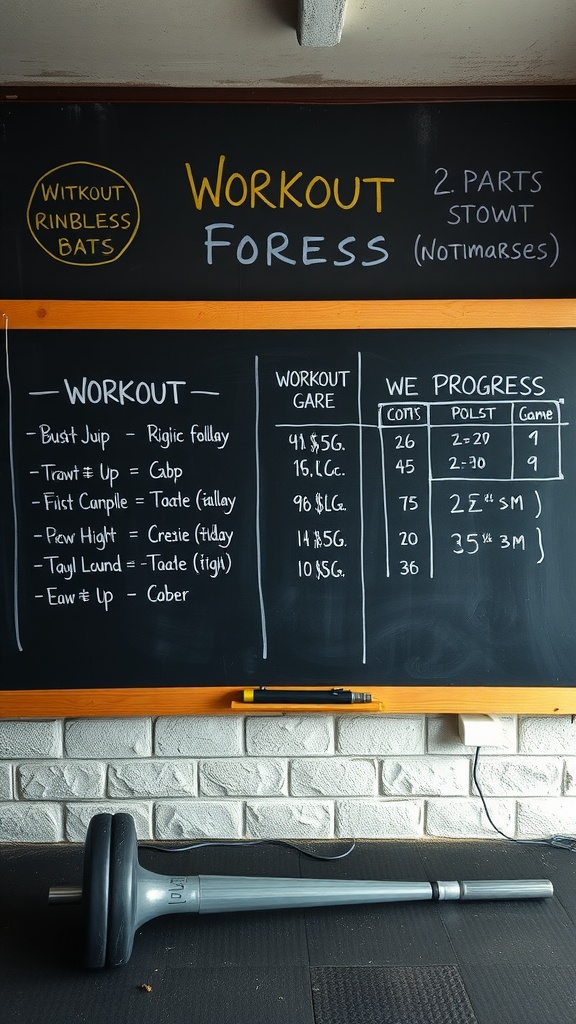 WITKOUT
RINBLESS
BATS
WORKOUT
FORESS
2. PARTS
STOWT
(NOTIMARSES)
— WORKOUT —
- Bustt Juip - Rigiic follay
- Trawt ‡ Up = Gabp
- Fiist Camplle = Taate (iallay
- Prew Hight = Cresie (tilday
- Tayl Lound = -Taate (iigh)
- Eaw ‡ Up - Caber
WORKOUT
GARE
41 $5G.
15,LGc.
96 $LG.
14 $5G.
10 $5G.
WE PROGRESS
COTTS POLST Game
26 2=20 1
45 2-30 9
75 2E SM )
20 35 3M )
36